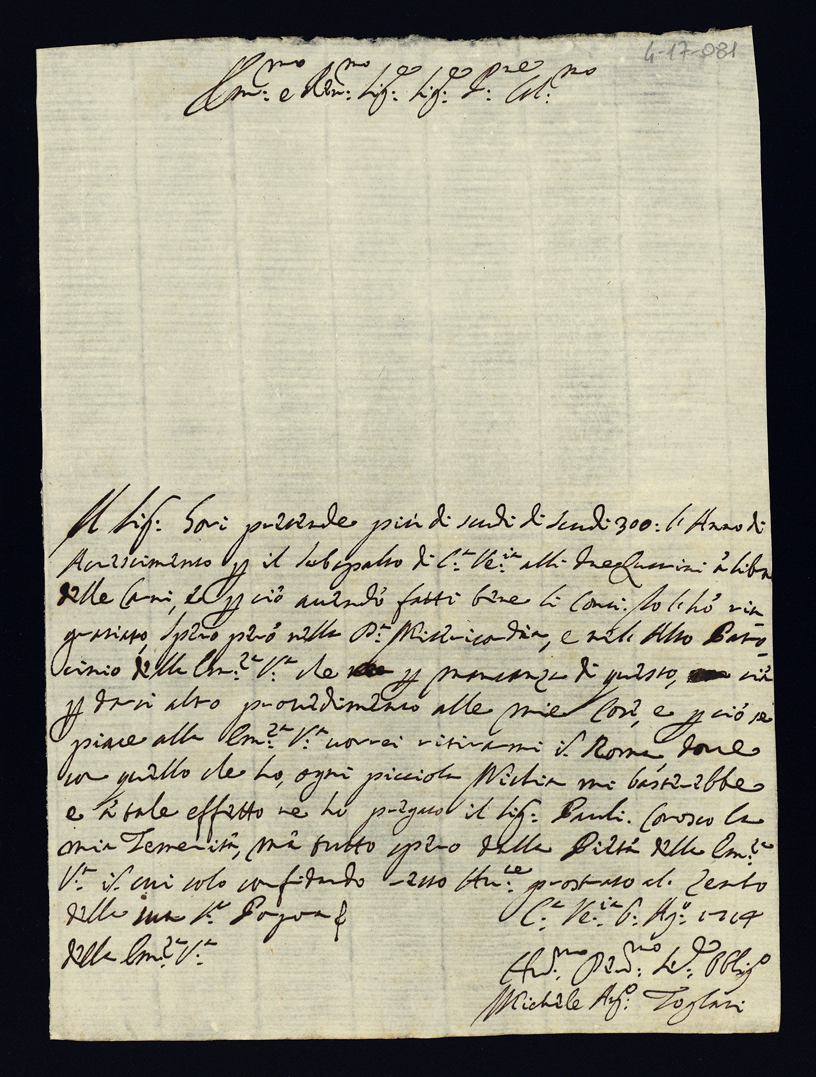 4-17-081
Em:mo e Rev:mo Sig:e Sig:e P:ne Col:mo
Il Sig: Gori pretende più di scudi di Scudi 300: l'Anno di
Acrescimento p il Subapalto di C:a Ve:ia alli due Quatrini à libra
delle Carni, e p ciò avendo fatti bene li Conti. Io l'hò rin-
gratiato, Spero però nella P:a Misericordia, e nel'Alto Patro-
cinio della Em:za V:a che p mancanza di questo, sia
p darci altro provedimento alle mie Cose, e p ciò se
piace alla Em:za V:a vorrei ritirarmi in Roma, dove
con quello che ho, ogni picciola Nichia mi bastarebbe
e à tale effetto ne ho pregato il Sig: Pauli. Conosco la
mia Temerità, mà tutto spero dalla Pietà della Em:za
V:a in cui solo confidando resto Hu:te prostrato al Lembo
della V:a Porpora
C:a Ve:ia 6: Ag:o 1714
della Em:za V:a
Hu:mo Dev:mo Se:re Obblig:o
Michele Ang:o